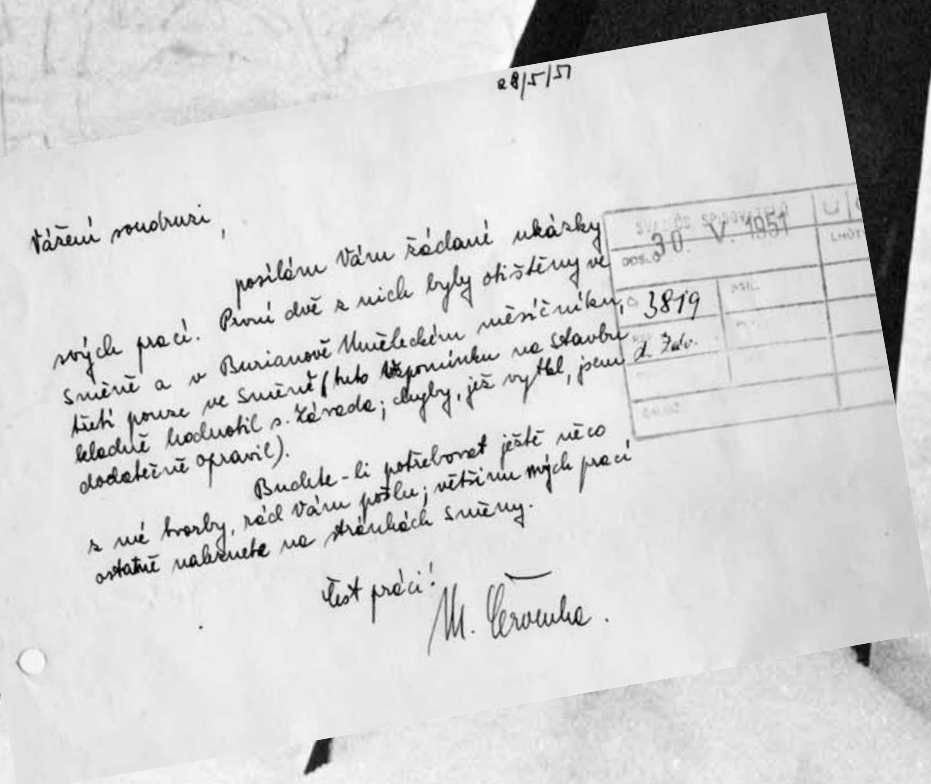 28/5/51
Vážení soudruzi,
posílám Vám žádané ukázky
svých prací. První dvě z nich byly otištěny ve
Směně a v Burianově Uměleckém měsíčníku,
třetí pouze ve Směně (tuto Vzpomínku na stavbu
kladně hodnotil s. Závada; chyby, jež vytkl, jsem
dodatečně opravil).
Budete-li potřebovat ještě něco
z mé tvorby, rád Vám pošlu; většinu mých prací
ostatně naleznete na stránkách Směny.
Čest práci!
M. Červenka.
SVAZ ČS. SPISOVATELŮ
DOŠLO 30. V. 1951
3819